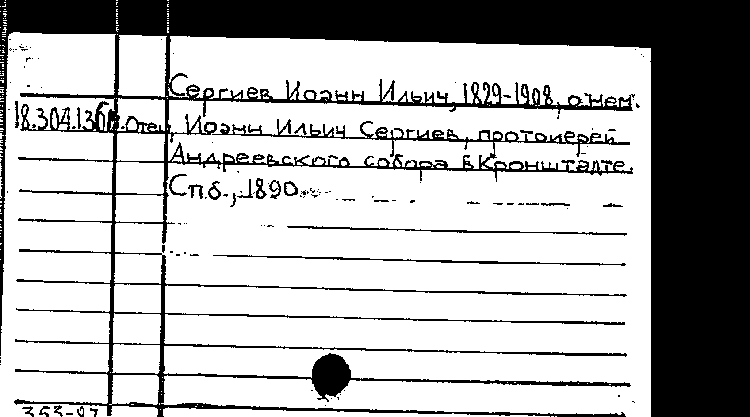 Сергиев Иоанн Ильич, 1829-1908, о нем.
18.304.13.6 Отец Иоанн Ильич Сергиев, протоиерей
Андреевского собора в Кронштадте.
Спб., 1890.